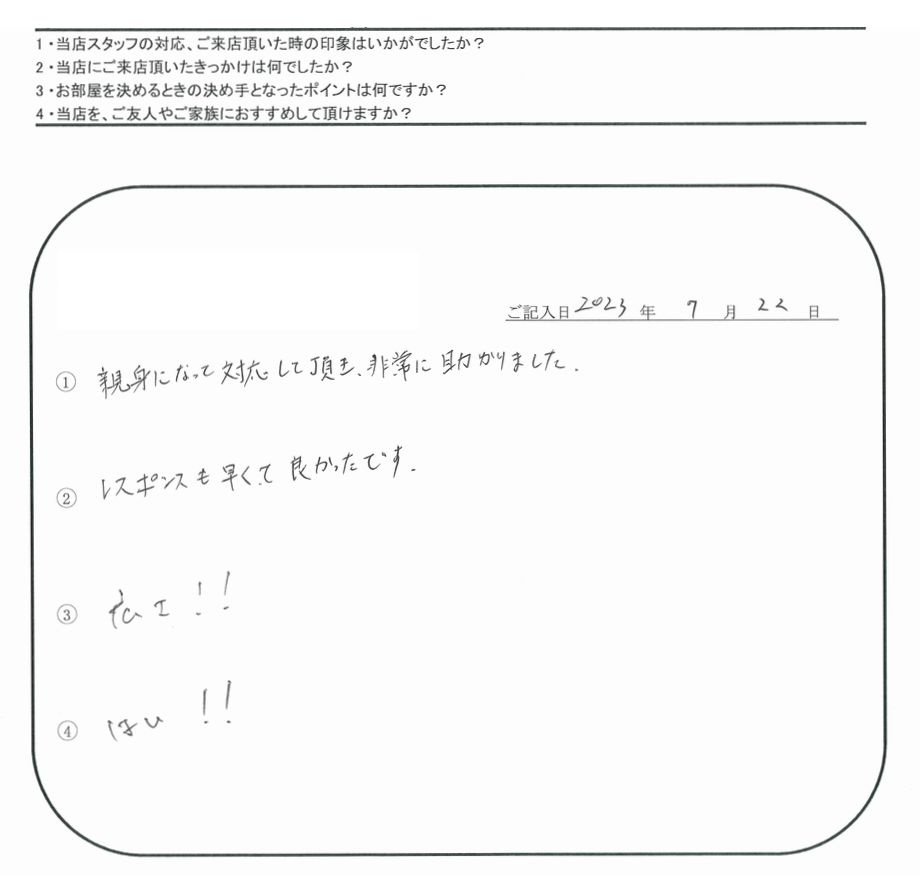 1・当店スタッフの対応、ご来店頂いた時の印象はいかがでしたか？
2・当店にご来店頂いたきっかけは何でしたか？
3・お部屋を決めるときの決め手となったポイントは何ですか？
4・当店を、ご友人やご家族におすすめして頂けますか？
ご記入日 2023 年 7 月 22 日
① 親身になって対応して頂き、非常に助かりました.
② レスポンスも早くて良かったです.
③ !!
④ はい !!